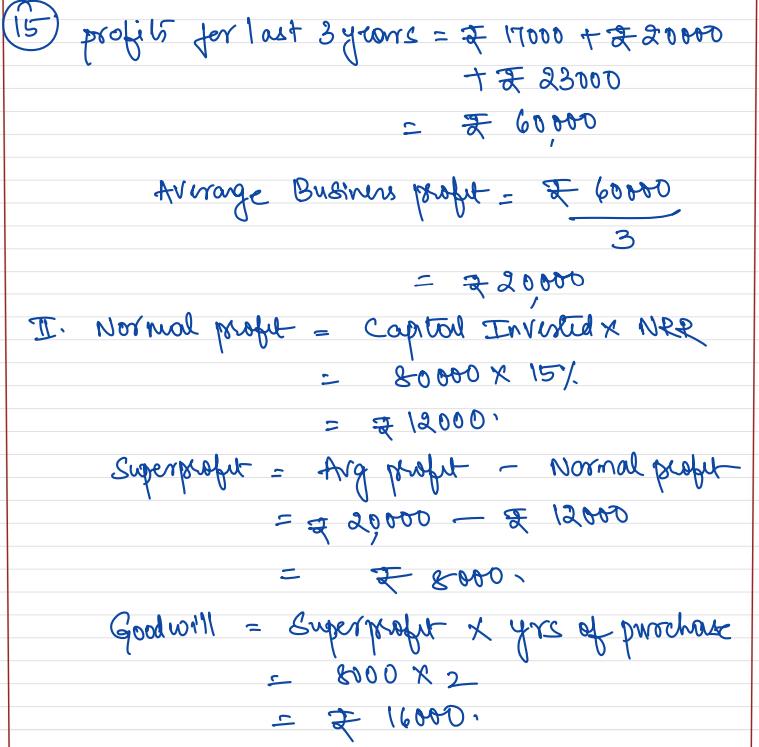 15 profits for last 3 years = ₹ 17000 + ₹ 20000
+ ₹ 23000
= ₹ 60,000
Average Business profit = ₹ 60000
3
= ₹ 20,000
II. Normal profit = Capital Invested x NRR
= 80000 x 15%
= ₹ 12000.
Superprofit = Avg profit - Normal profit
= ₹ 20,000 - ₹ 12000
= ₹ 8000.
Goodwill = Superprofit x yrs of purchase
= 8000 x 2
= ₹ 16000.